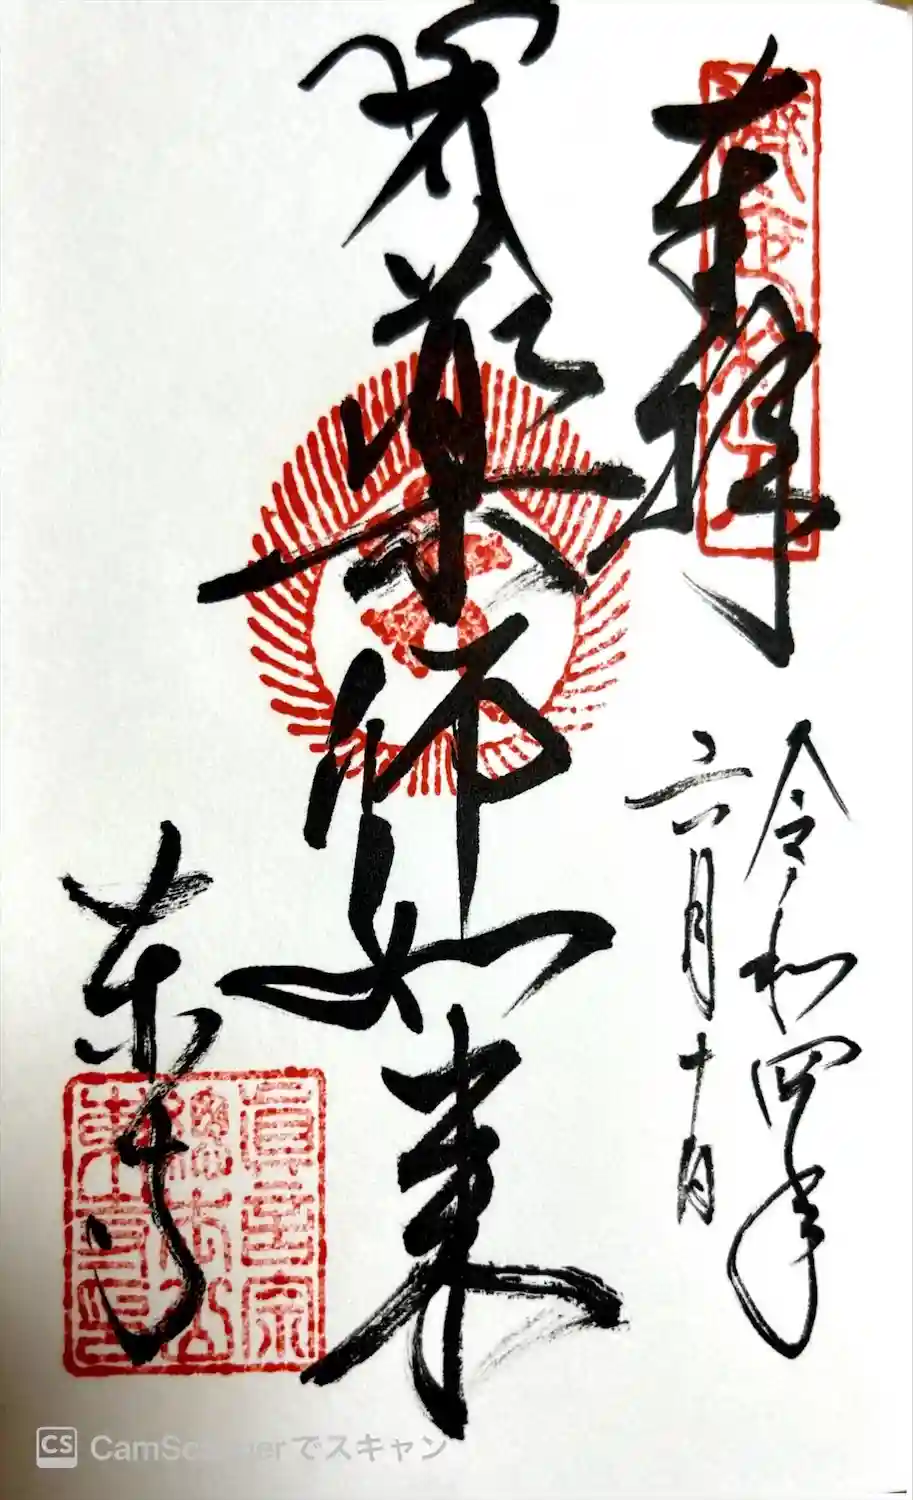 奉拝
令和四年
六月十日
薬師如来
東寺
真言宗
総本山
東寺印
CS CamScannerでスキャン